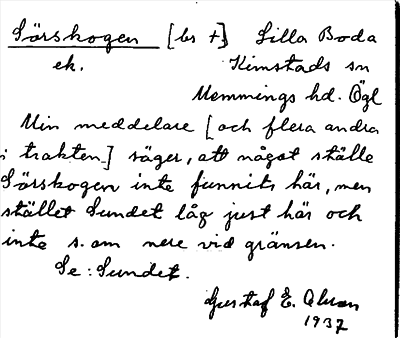 Sörskogen [bs +] Lilla Boda
ek. Kimstads sn
Memmings hd. Ögl
Min meddelare [och flera andra
i trakten] säger, att något ställe
Sörskogen inte funnits här, men
stället Sundet låg just här och
inte s. om nere vid gränsen.
Se: Sundet.
Gustaf E. Olson
1937